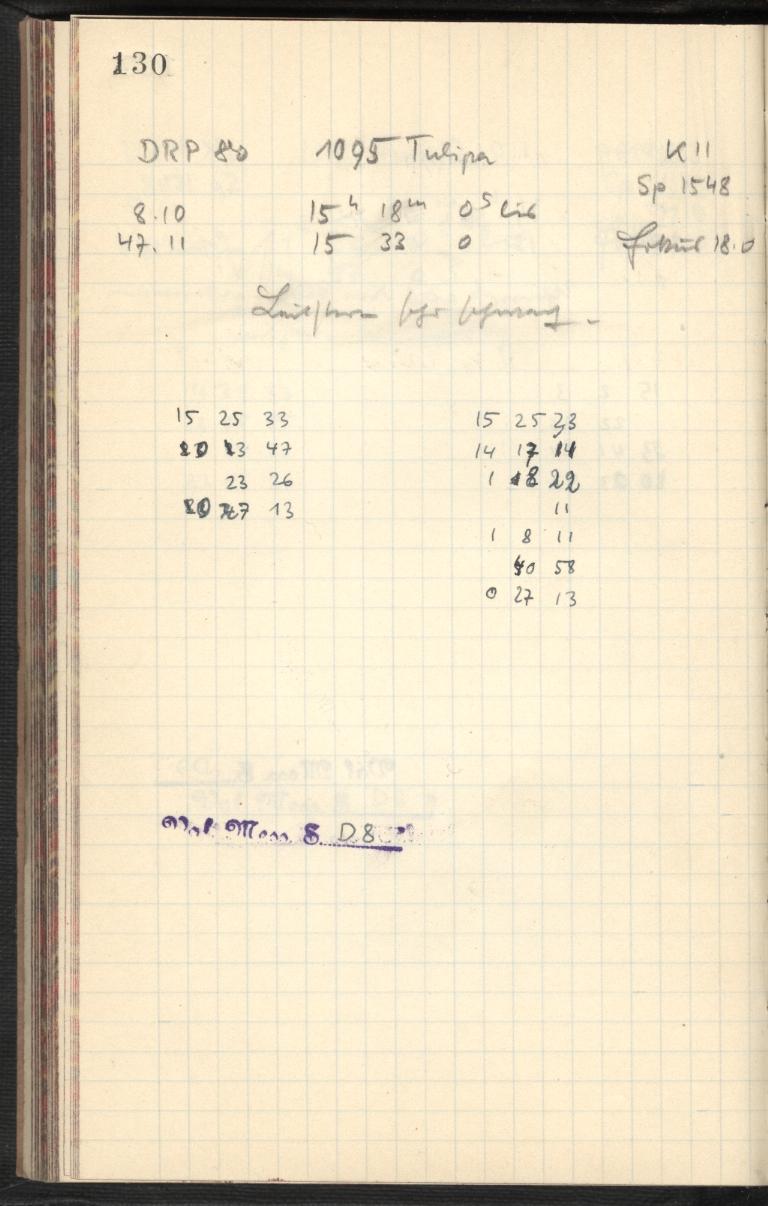 130
DRP 80 1095 Tulipa K 11
Sp 1548
8.10 15 h 18 m 0 s bis
47.11 15 33 0 Fokus 18.0
Leitstern sehr schwach.
15 25 33
23 47
23 26
13
15 25 33
14 17 11
1 18 22
11
1 8 11
40 58
0 27 13
D 8